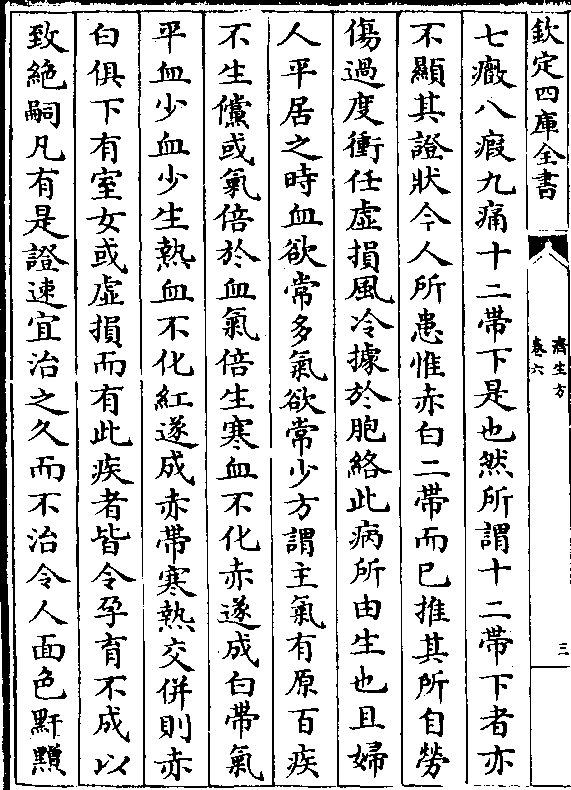 欽定四庫全書
濟生方
卷六
三
七癥八瘕九痛十二帶下是也然所謂十二帶下者亦
不顯其證狀今人所患惟赤白二帶而已推其所自勞
傷過度衝任虛損風冷據於胞絡此病所由生也且婦
人平居之時血欲常多氣欲常少方謂主氣有原百疾
不生儻或氣倍於血氣倍生寒血不化赤遂成白帶氣
平血少血少生熱血不化紅遂成赤帶寒熱交併則赤
白俱下有室女或虛損而有此疾者皆令孕育不成以
致絶嗣凡有是證速宜治之久而不治令人面色䵟䵳